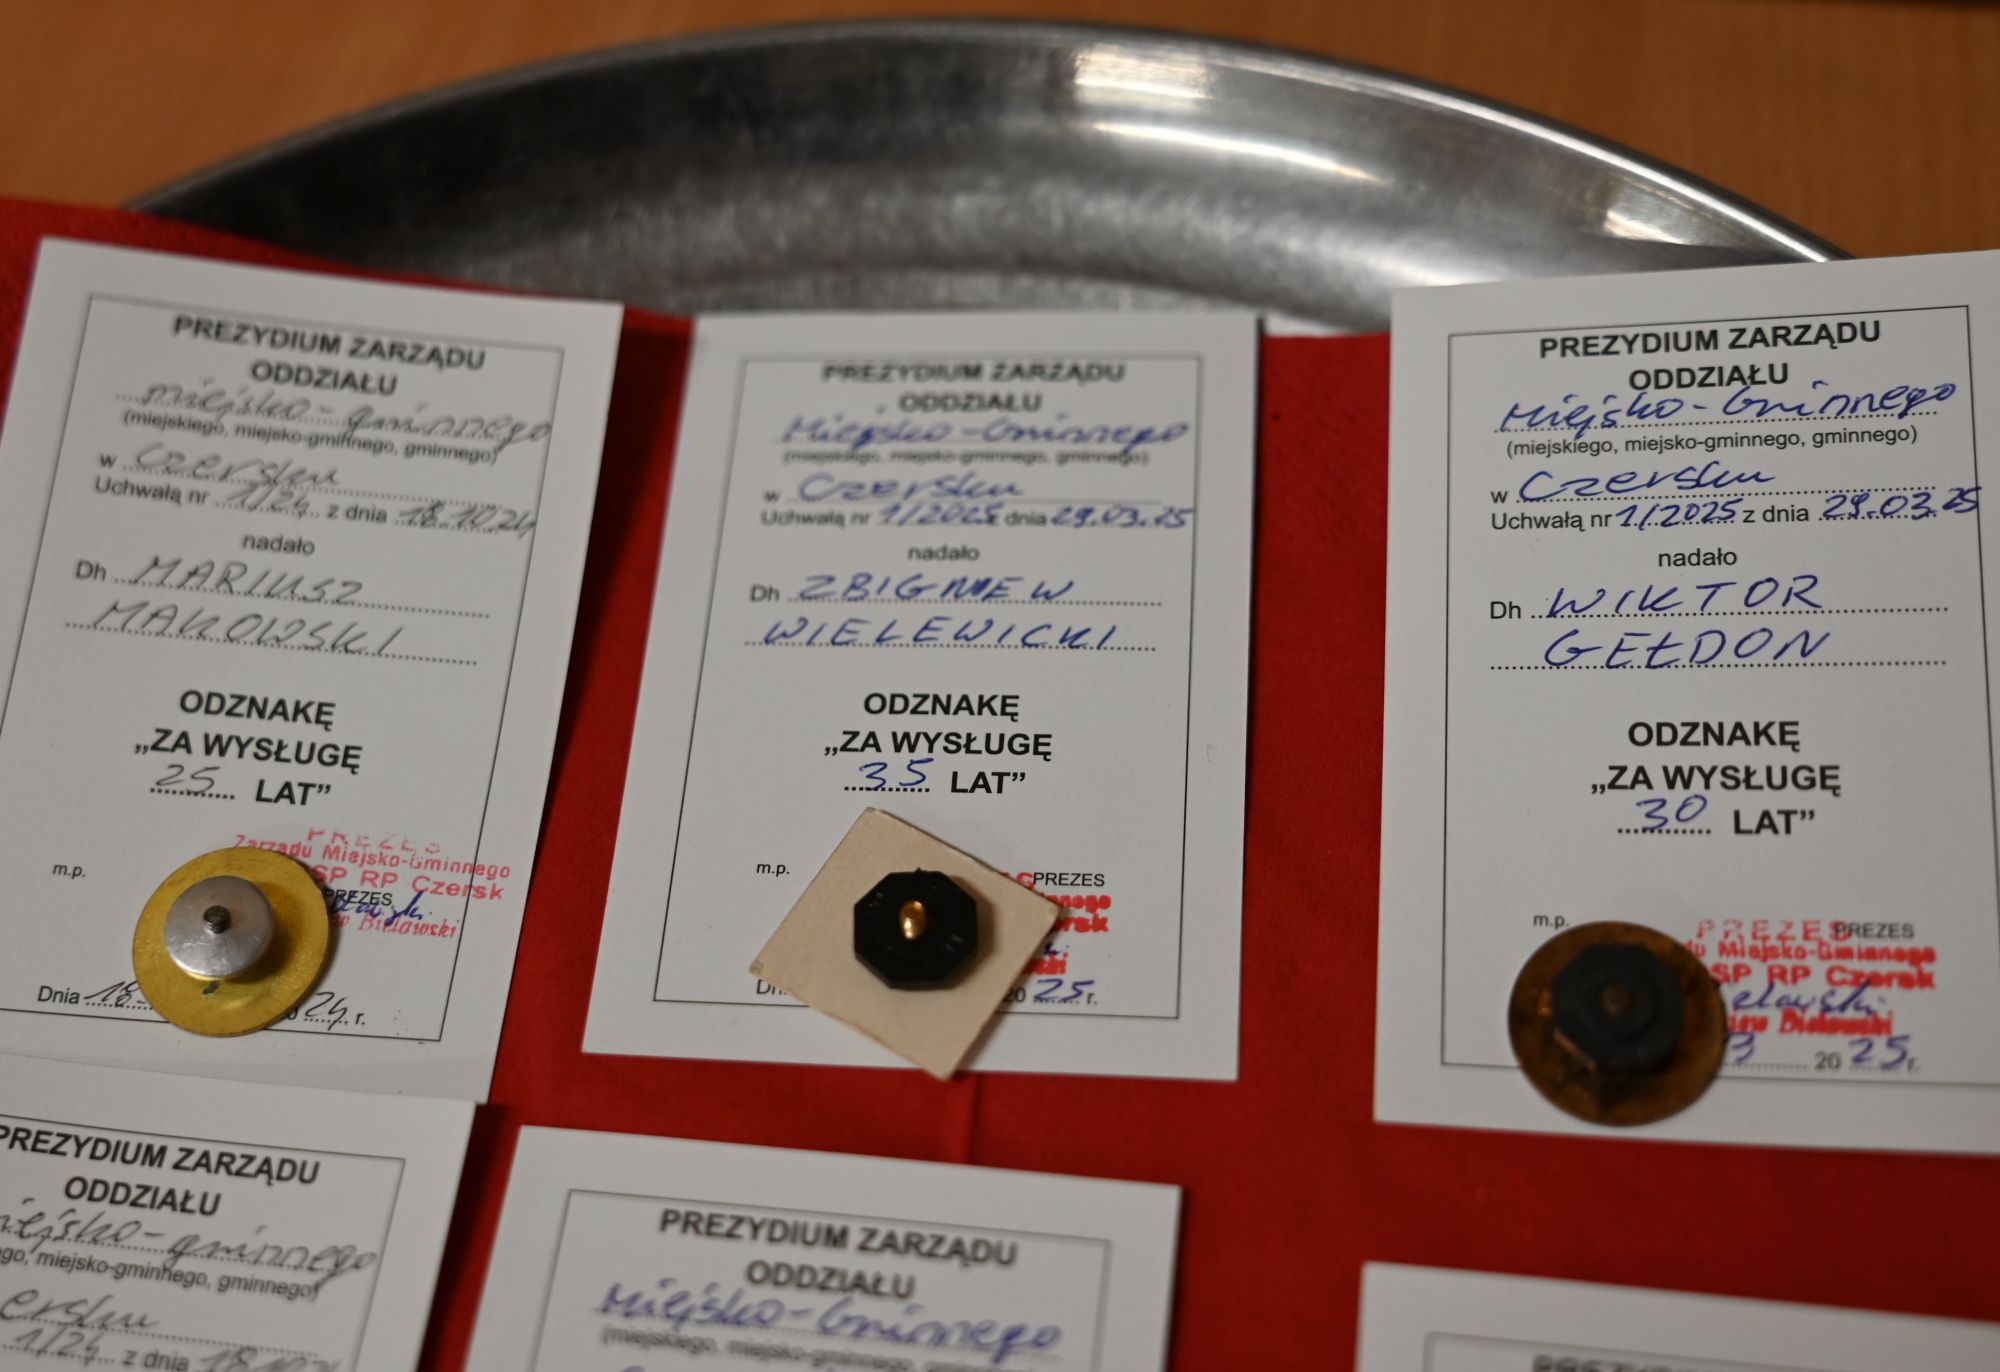 PREZYDIUM ZARZĄDU
ODDZIAŁU
miejsko-gminnego
(miejskiego, miejsko-gminnego, gminnego)
w Czersku
Uchwałą nr 1/24 z dnia 18.10.24
nadało
Dh MARIUSZ
MAKOWSKI
ODZNAKĘ
„ZA WYSŁUGĘ
25 LAT”
PREZES
Zarządu Miejsko-Gminnego
SP RP Czersk
m.p. PREZES
Bielawski
Dnia 18. 24 r.
PREZYDIUM ZARZĄDU
ODDZIAŁU
Miejsko-Gminnego
(miejskiego, miejsko-gminnego, gminnego)
w Czersku
Uchwałą nr 1/2025 z dnia 29.03.25
nadało
Dh ZBIGNIEW
WIELEWICKI
ODZNAKĘ
„ZA WYSŁUGĘ
35 LAT”
m.p. PREZES
20 25 r.
PREZYDIUM ZARZĄDU
ODDZIAŁU
Miejsko-Gminnego
(miejskiego, miejsko-gminnego, gminnego)
w Czersku
Uchwałą nr 1/2025 z dnia 29.03.25
nadało
Dh WIKTOR
GEŁDON
ODZNAKĘ
„ZA WYSŁUGĘ
30 LAT”
m.p. PREZES PREZES
du Miejsko-Gminnego
SP RP Czersk
Bielawski
3 20 25 r.
PREZYDIUM ZARZĄDU
ODDZIAŁU
miejsko-gminnego
miejsko-gminnego, gminnego)
ersku
1/24 z dnia 18.10.2
PREZYDIUM ZARZĄDU
ODDZIAŁU
Miejsko-Gminnego
(miejskiego, miejsko-gminnego, gminnego)
PREZYDIUM ZARZĄDU